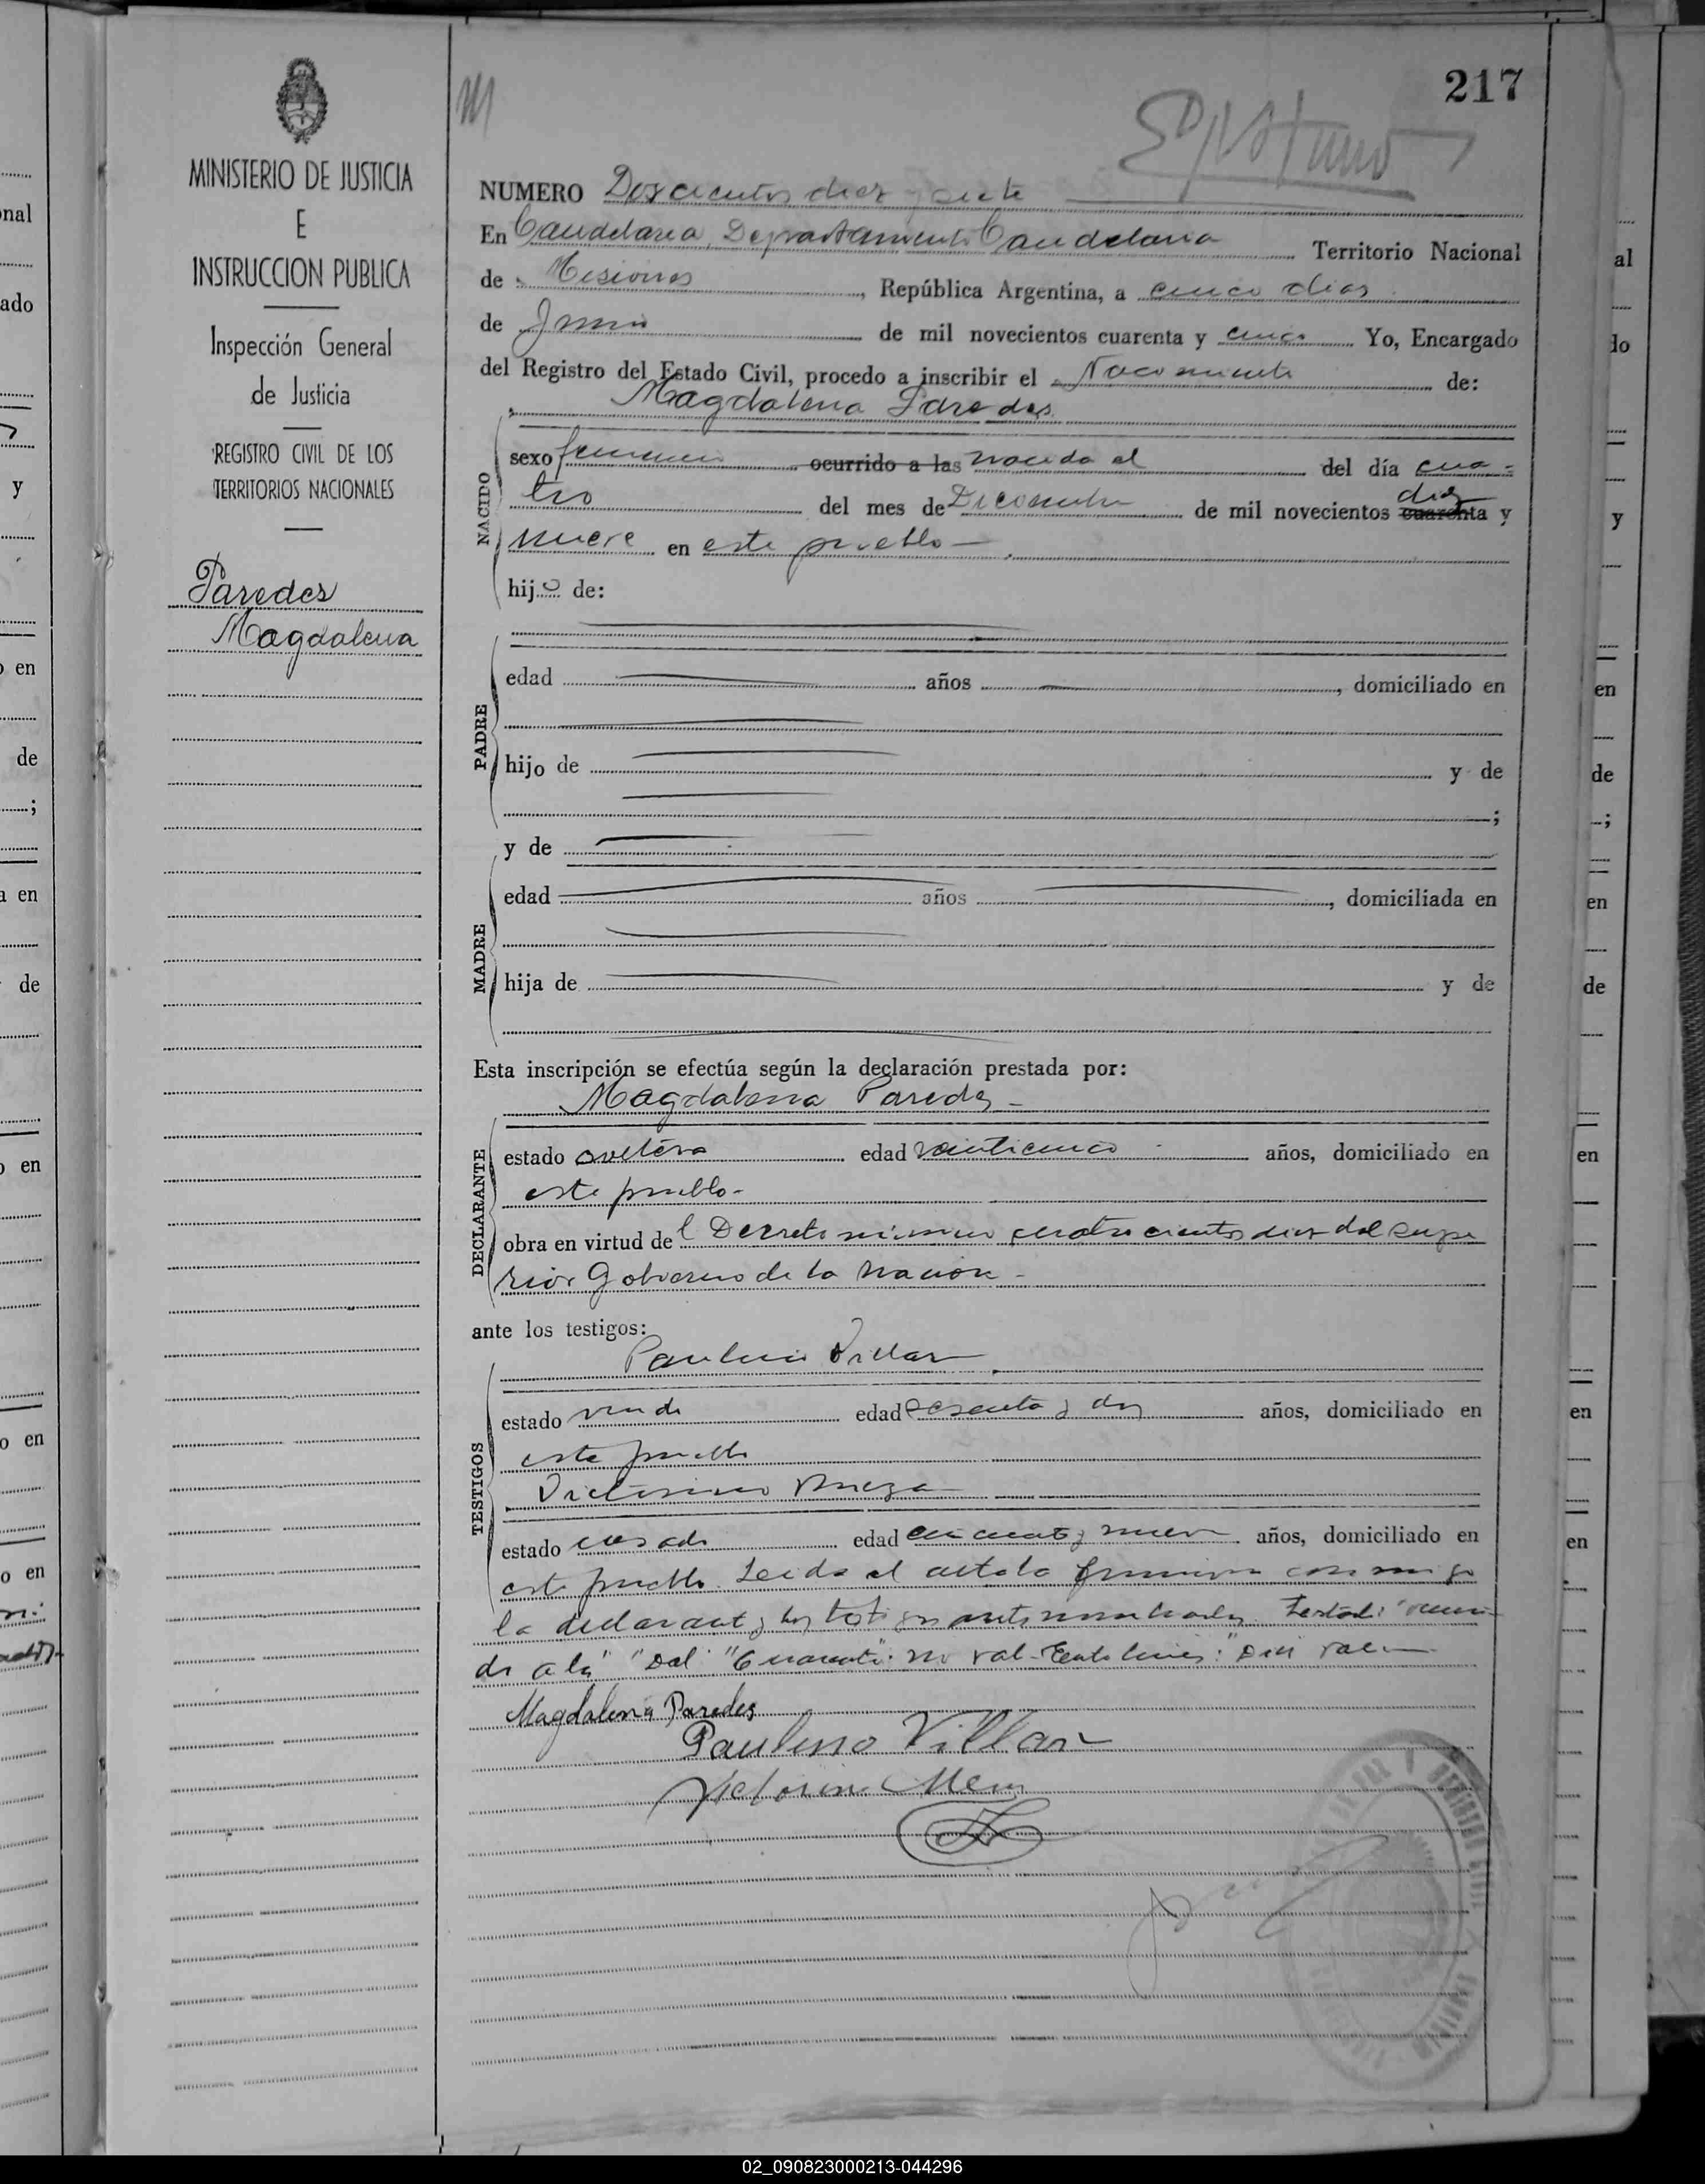 217
MINISTERIO DE JUSTICIA
E
INSTRUCCION PUBLICA
Inspección General
de Justicia
REGISTRO CIVIL DE LOS
TERRITORIOS NACIONALES
Paredes
Magdalena
NUMERO Doscientos diez y siete
En Candelaria, Departamento Candelaria Territorio Nacional
de Misiones, República Argentina, a cinco dias
de Junio de mil novecientos cuarenta y cinco Yo, Encargado
del Registro del Estado Civil, procedo a inscribir el Nacimiento de:
Magdalena Paredes
NACIDO
sexo femenino ocurrido a las nacida el del día cua-
tro del mes de Diciembre de mil novecientos cuarenta diez y
nueve en este pueblo
hijo de:
PADRE
edad años, domiciliado en
hijo de y de
;
y de
MADRE
edad años, domiciliada en
hija de y de
Esta inscripción se efectúa según la declaración prestada por:
Magdalena Paredes
DECLARANTE
estado soltera edad veinticinco años, domiciliado en
este pueblo-
obra en virtud del Decreto número cuatrocientos diez del supe
rior Gobierno de la Nacion-
ante los testigos:
Paulino Villar
TESTIGOS
estado viudo edad sesenta y dos años, domiciliado en
este pueblo
Victorino Meza
estado casado edad cincuenta y nueve años, domiciliado en
este pueblo. Leida el acta la firman conmigo
la declarante y los testigos antes nombrados. Testado: "ocurri-
do a las" "Del" "Cuarenta": no val- Entre lineas: "Diez" vale
Magdalena Paredes
Paulino Villar
Victorino Meza
02_090823000213-044296